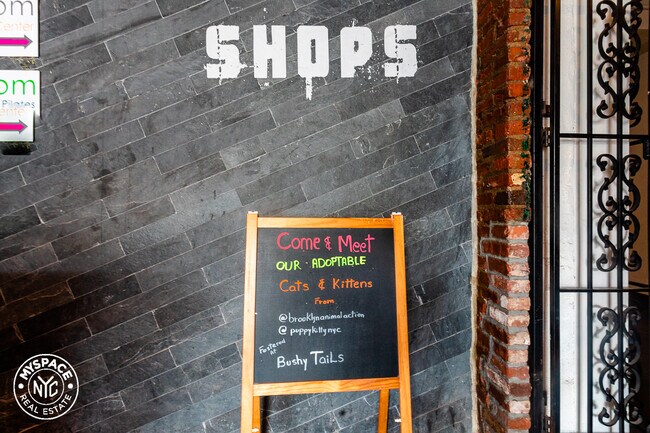 om
Center
SHOPS
om
Pilates
Center
Come & Meet
OUR · ADOPTABLE
Cats & Kittens
From
@brooklynanimalaction
@puppykittynyc
Fostered
At
Bushy Tails
MYSPACE
NYC
REAL ESTATE